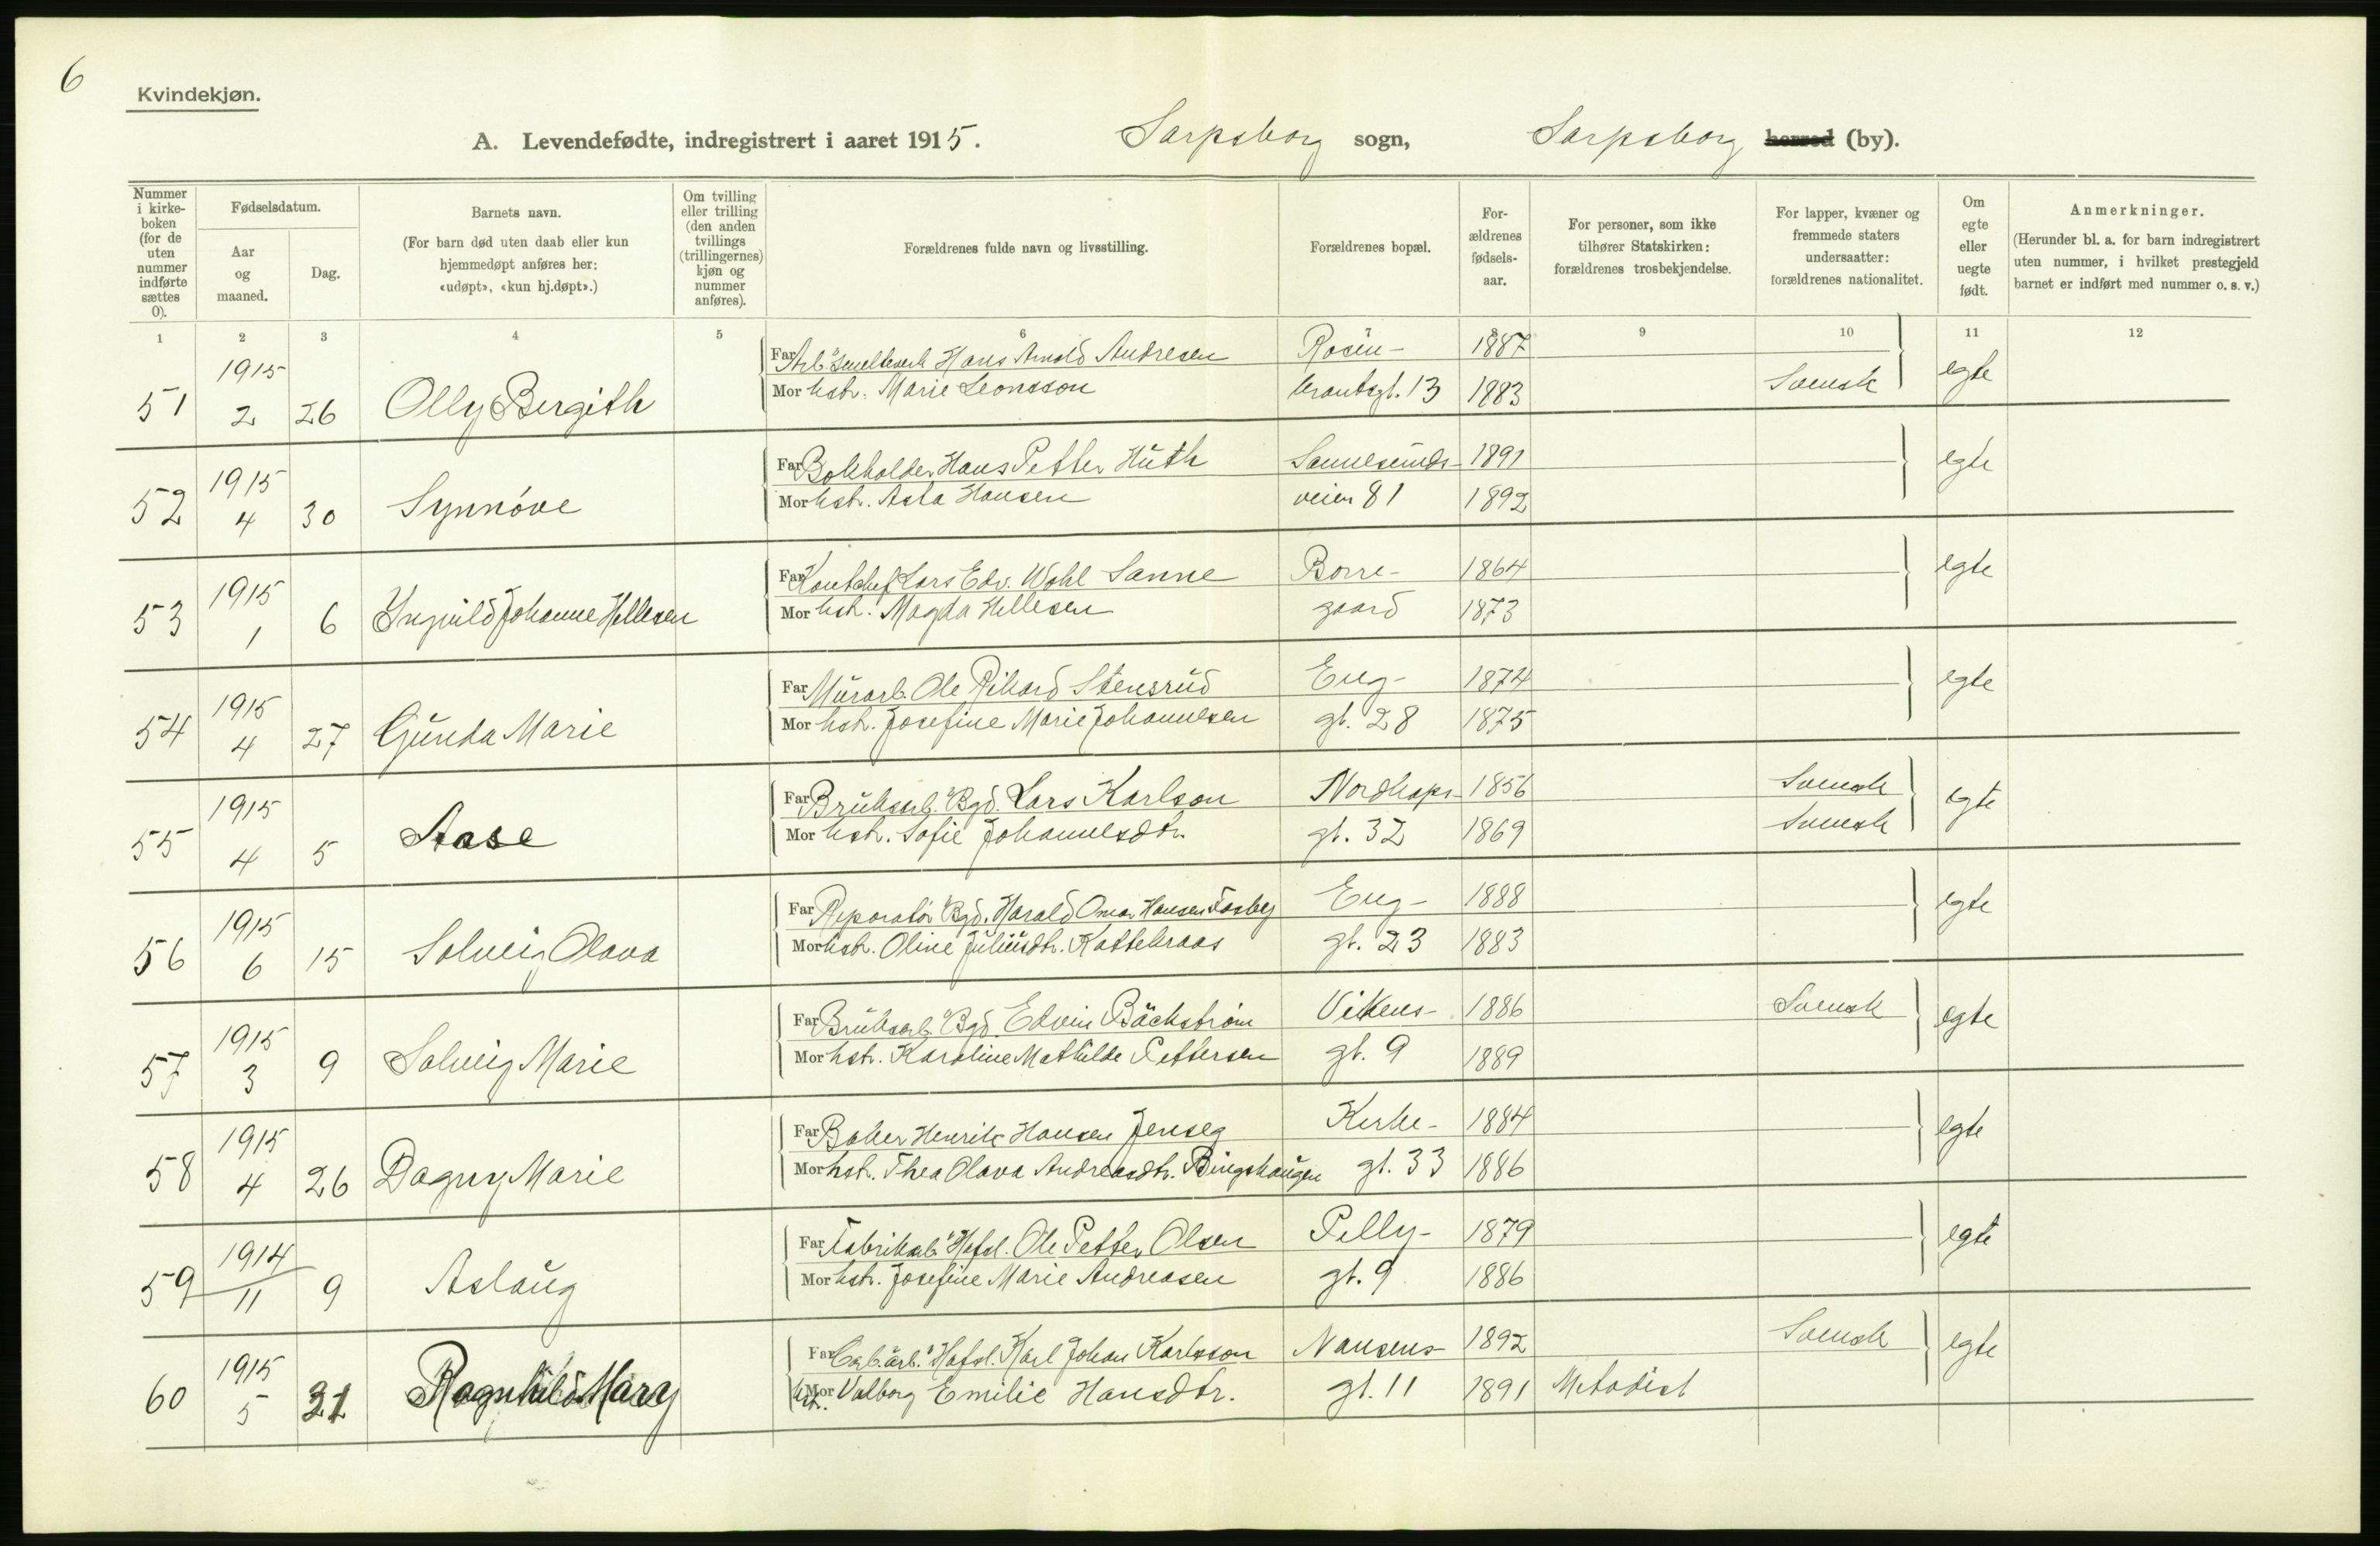 6
Kvindekjøn.
A. Levendefødte, indregistrert i aaret 1915. Sarpsborg sogn, Sarpsborg herred (by).
Nummer i kirke-boken (for de uten nummer indførte sættes 0).
Fødselsdatum.
Aar og maaned.
Dag.
Barnets navn.
(For barn død uten daab eller kun hjemmedøpt anføres her: «udøpt», «kun hj.døpt».)
Om tvilling eller trilling (den anden tvillings (trillingernes) kjøn og nummer anføres).
Forældrenes fulde navn og livsstilling.
Forældrenes bopæl.
For-ældrenes fødsels-aar.
For personer, som ikke tilhører Statskirken: forældrenes trosbekjendelse.
For lapper, kvæner og fremmede staters undersaatter: forældrenes nationalitet.
Om egte eller uegte født.
Anmerkninger.
(Herunder bl. a. for barn indregistrert uten nummer, i hvilket prestegjeld barnet er indført med nummer o. s. v.)
1 2 3 4 5 6 7 8 9 10 11 12
51 1915 2 26 Olly Bergith
Far Arb. Smelteverk Hans Arnold Andresen Rosen- 1887
Mor hstr. Marie Leonsson krantsgt. 13 1883 Svensk egte
52 1915 4 30 Synnöve
Far Bokholder Hans Petter Huth Sannesunds- 1891
Mor hstr. Asta Hansen veien 81 1892 egte
53 1915 1 6 Ingvild Johanne Hellesen
Far Kontchef Lars Edv. Wohl Sanne Borre- 1864
Mor hstr. Magda Hellesen gaard 1873 egte
54 1915 4 27 Gunda Marie
Far Murarb. Ole Rikard Stensrud Eng- 1874
Mor hstr. Josefine Marie Johannesen gt. 28 1875 egte
55 1915 4 5 Aase
Far Bruksarb. Bgd. Lars Karlson Nordkaps- 1856 Svensk
Mor hstr. Sofie Johannesdtr. gt. 32 1869 Svensk egte
56 1915 6 15 Solveig Olava
Far Reparatör Bgd. Harald Omar Hansen Fosby Eng- 1888
Mor hstr. Oline Juliusdtr. Kattebraas gt. 23 1883 egte
57 1915 3 9 Solveig Marie
Far Bruksarb. Bgd. Edvin Bäckström Vikens- 1886 Svensk
Mor hstr. Karoline Mathilde Pettersen gt. 9 1889 egte
58 1915 4 26 Dagny Marie
Far Baker Henrik Hansen Jenseg Kirke- 1884
Mor hstr. Thea Olava Andreasdtr. Bingshaugen gt. 33 1886 egte
59 1914 11 9 Aslaug
Far Fabrikarb. Hafsl. Ole Petter Olsen Pelly- 1879
Mor hstr. Josefine Marie Andreasen gt. 9 1886 egte
60 1915 5 31 Ragnhild Mary
Far Carb.arb. Hafsl. Karl Johan Karlsson Nansens- 1892 Svensk
Mor hst. Valborg Emilie Hansdtr. gt. 11 1891 Metodist egte